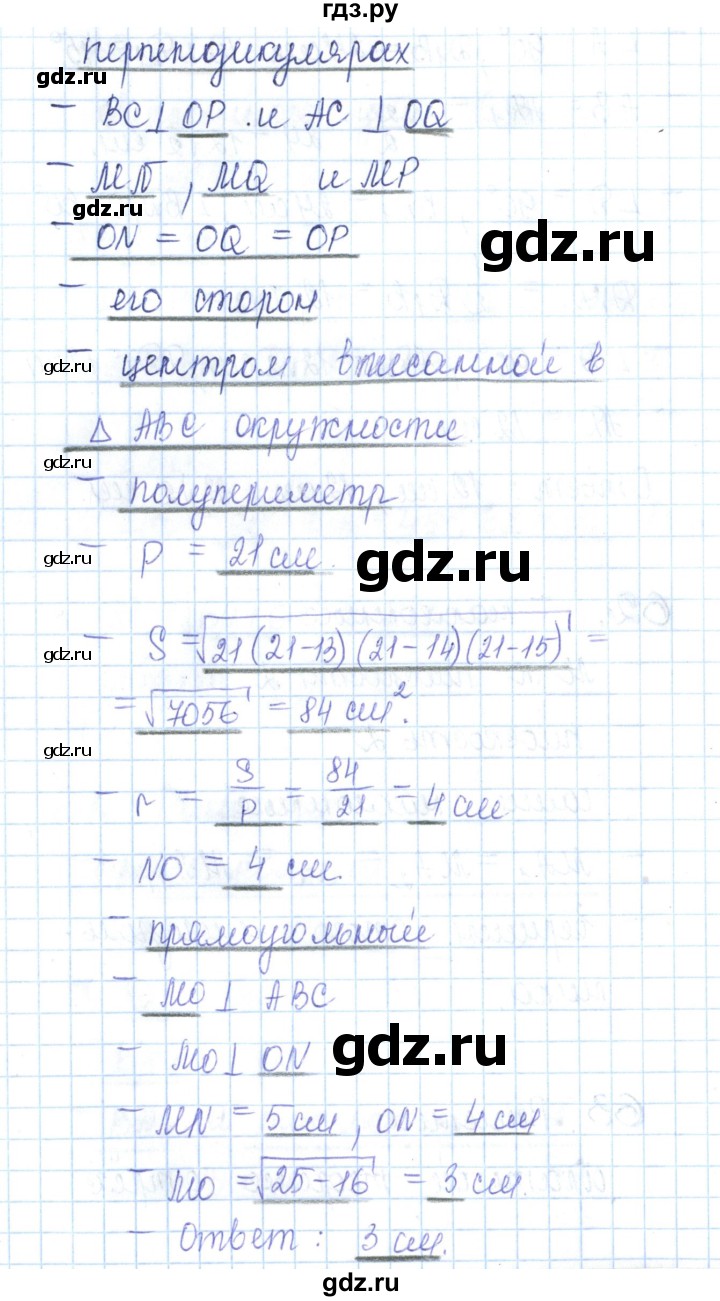 гдз.ру
gdz.ru
перпендикулярах
– BC⊥ OP и AC ⊥ OQ
– MN, MQ и MP
gdz.ru
– ON = OQ = OP
gdz.ru
– его сторон
gdz.ru
– центром вписанной в
△ ABC окружности
gdz.ru
– полупериметр
gdz.ru
– p = 21 см.
gdz.ru
gdz.ru
– S = √21(21-13)(21-14)(21-15) =
= √7056 = 84 см².
gdz.ru
– r = S/p = 84/21 = 4 см
– NO = 4 см.
– прямоугольный
– MO⊥ ABC
– MO⊥ ON
gdz.ru
– MN = 5 см, ON = 4 см
– MO = √25-16 = 3 см.
– Ответ: 3 см.
gdz.ru